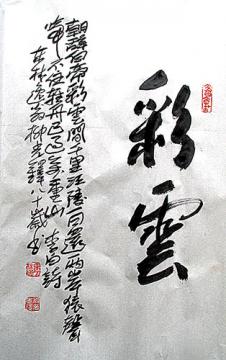 彩雲
朝辭白帝彩雲間千里江陵一日還兩岸猿聲
啼不住輕舟已過萬重山 李白詩
八十歲